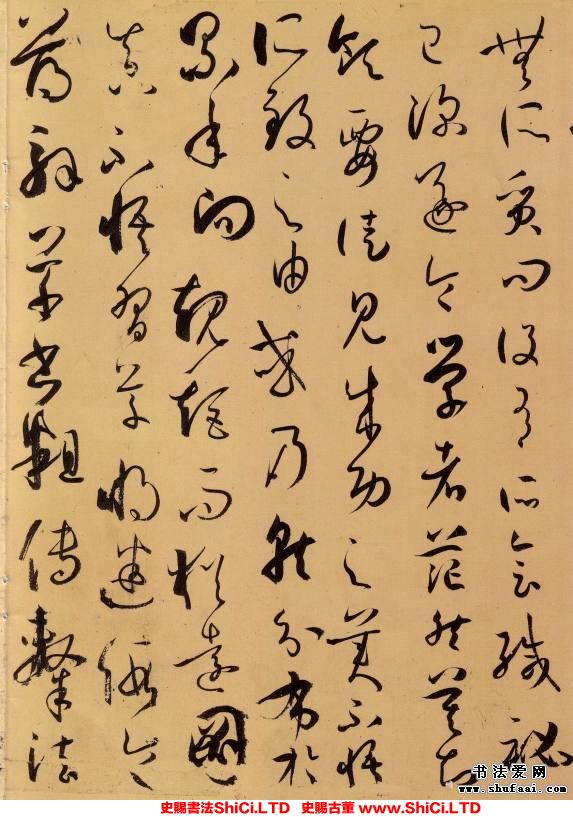 無所質問設有所會緘秘
已深遂令學者茫然莫知
領要徒見成功之美不悟
所致之由或乃就分布於
累年向規矩而猶遠圖
真不悟習草將迷假令
薄解草書粗傳隸法
书法爱网
www.shufaai.com
史賜書法ShiCi.LTD 史賜古董 www.ShiCi.LTD